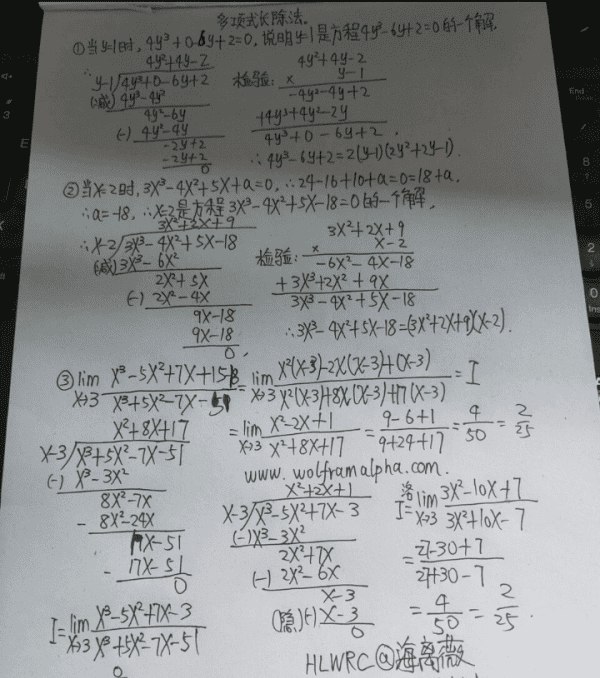 多项式长除法.
①当y=1时, 4y³+0-6y+2=0, 说明y=1是方程4y³-6y+2=0的一个解.
4y²+4y-2
∴ y-1)4y³+0-6y+2
(减) 4y³-4y²
4y²-6y
(-) 4y²-4y
-2y+2
-2y+2
0
检验:
4y²+4y-2
× y-1
-4y²-4y+2
+4y³+4y²-2y
4y³+0-6y+2.
∴4y³-6y+2=2(y-1)(2y²+2y-1).
②当x=2时, 3x³-4x²+5x+a=0, ∴24-16+10+a=0=18+a.
∴a=-18, ∴x=2是方程3x³-4x²+5x-18=0的一个解,
3x²+2x+9
∴x-2)3x³-4x²+5x-18
(减)3x³-6x²
2x²+5x
(-) 2x²-4x
9x-18
9x-18
0,
检验:
3x²+2x+9
× x-2
-6x²-4x-18
+3x³+2x²+9x
3x³-4x²+5x-18
∴3x³-4x²+5x-18=(3x²+2x+9)(x-2).
③ lim x→3 (x³-5x²+7x+15)/(x³+5x²-7x-51) = lim x→3 (x²(x-3)-2x(x-3)+(x-3))/(x²(x-3)+8x(x-3)+17(x-3)) = I
= lim x→3 (x²-2x+1)/(x²+8x+17) = (9-6+1)/(9+24+17) = 4/50 = 2/25
x²+8x+17
x-3)x³+5x²-7x-51
(-) x³-3x²
8x²-7x
- 8x²-24x
17x-51
- 17x-51
0
I=lim x→3 (x³-5x²+7x-3)/(x³+5x²-7x-51)
0
www.wolframalpha.com.
x²+2x+1
x-3)x³-5x²+7x-3
(-)x³-3x²
2x²+7x
(-) 2x²-6x
x-3
(隐)(-) x-3
0
I 洛= lim x→3 (3x²-10x+7)/(3x²+10x-7)
= (27-30+7)/(27+30-7)
= 4/50 = 2/25.
HLWRC@海离薇